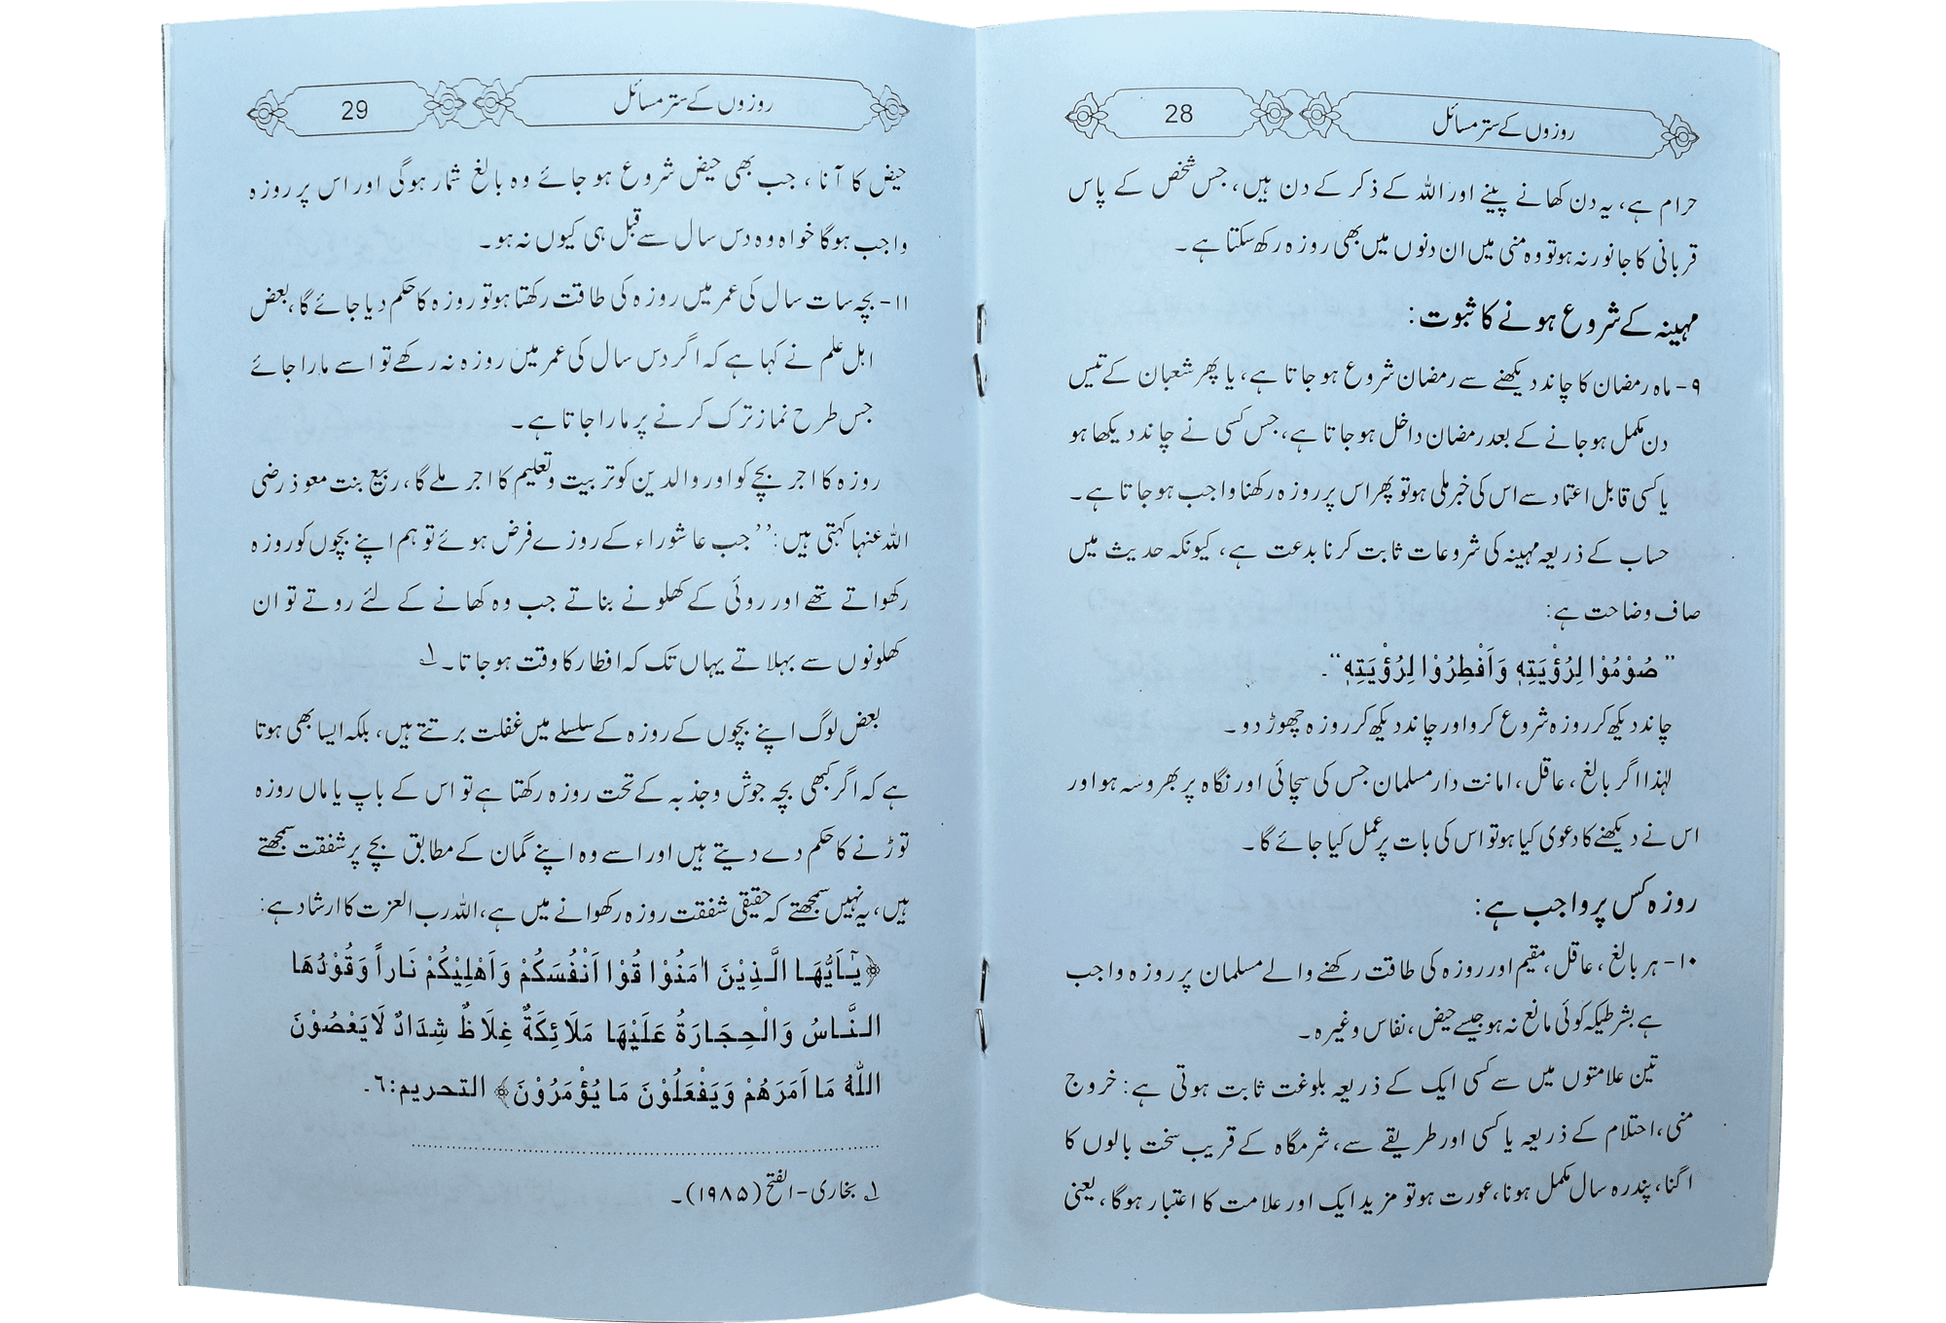 28
روزوں کے ستر مسائل
حرام ہے، یہ دن کھانے پینے اور اللہ کے ذکر کے دن ہیں، جس شخص کے پاس
قربانی کا جانور نہ ہو تو وہ منی میں ان دنوں میں بھی روزہ رکھ سکتا ہے۔
مہینہ کے شروع ہونے کا ثبوت:
۹- ماہ رمضان کا چاند دیکھنے سے رمضان شروع ہو جاتا ہے، یا پھر شعبان کے تیس
دن مکمل ہو جانے کے بعد رمضان داخل ہو جاتا ہے، جس کسی نے چاند دیکھا ہو
یا کسی قابل اعتماد سے اس کی خبر ملی ہو تو پھر اس پر روزہ رکھنا واجب ہو جاتا ہے۔
حساب کے ذریعہ مہینہ کی شروعات ثابت کرنا بدعت ہے، کیونکہ حدیث میں
صاف وضاحت ہے:
”صُوْمُوْا لِرُؤْيَتِهٖ وَاَفْطِرُوْا لِرُؤْيَتِهٖ“۔
چاند دیکھ کر روزہ شروع کرو اور چاند دیکھ کر روزہ چھوڑ دو۔
لہٰذا اگر بالغ، عاقل، امانت دار مسلمان جس کی سچائی اور نگاہ پر بھروسہ ہو اور
اس نے دیکھنے کا دعوی کیا ہو تو اس کی بات پر عمل کیا جائے گا۔
روزہ کس پر واجب ہے:
۱۰- ہر بالغ، عاقل، مقیم اور روزہ کی طاقت رکھنے والے مسلمان پر روزہ واجب
ہے بشرطیکہ کوئی مانع نہ ہو جیسے حیض، نفاس وغیرہ۔
تین علامتوں میں سے کسی ایک کے ذریعہ بلوغت ثابت ہوتی ہے: خروج
منی، احتلام کے ذریعہ یا کسی اور طریقے سے، شرمگاہ کے قریب سخت بالوں کا
اگنا، پندرہ سال مکمل ہونا، عورت ہو تو مزید ایک اور علامت کا اعتبار ہوگا، یعنی
29
روزوں کے ستر مسائل
حیض کا آنا، جب بھی حیض شروع ہو جائے وہ بالغ شمار ہوگی اور اس پر روزہ
واجب ہوگا خواہ وہ دس سال سے قبل ہی کیوں نہ ہو۔
۱۱- بچہ سات سال کی عمر میں روزہ کی طاقت رکھتا ہو تو روزہ کا حکم دیا جائے گا، بعض
اہل علم نے کہا ہے کہ اگر دس سال کی عمر میں روزہ نہ رکھے تو اسے مارا جائے
جس طرح نماز ترک کرنے پر مارا جاتا ہے۔
روزہ کا اجر بچے کو اور والدین کو تربیت وتعلیم کا اجر ملے گا، ربیع بنت معوذ رضی
اللہ عنہا کہتی ہیں: ’’جب عاشوراء کے روزے فرض ہوئے تو ہم اپنے بچوں کو روزہ
رکھواتے تھے اور روئی کے کھلونے بناتے جب وہ کھانے کے لئے روتے تو ان
کھلونوں سے بہلاتے یہاں تک کہ افطار کا وقت ہو جاتا۔ ۱؎
بعض لوگ اپنے بچوں کے روزہ کے سلسلے میں غفلت برتتے ہیں، بلکہ ایسا بھی ہوتا
ہے کہ اگر کبھی بچہ جوش وجذبہ کے تحت روزہ رکھتا ہے تو اس کے باپ یا ماں روزہ
توڑنے کا حکم دے دیتے ہیں اور اسے وہ اپنے گمان کے مطابق بچے پر شفقت سمجھتے
ہیں، یہ نہیں سمجھتے کہ حقیقی شفقت روزہ رکھوانے میں ہے، اللہ رب العزت کا ارشاد ہے:
﴿يٰٓاَيُّهَا الَّذِيْنَ اٰمَنُوْا قُوْا اَنْفُسَكُمْ وَاَهْلِيْكُمْ نَاراً وَقُوْدُهَا
النَّاسُ وَالْحِجَارَةُ عَلَيْهَا مَلَائِكَةٌ غِلَاظٌ شِدَادٌ لَا يَعْصُوْنَ
اللّٰهَ مَا اَمَرَهُمْ وَيَفْعَلُوْنَ مَا يُؤْمَرُوْنَ﴾ التحریم:٦۔
۱؎ بخاری-الفتح (۱۹۸۵)۔